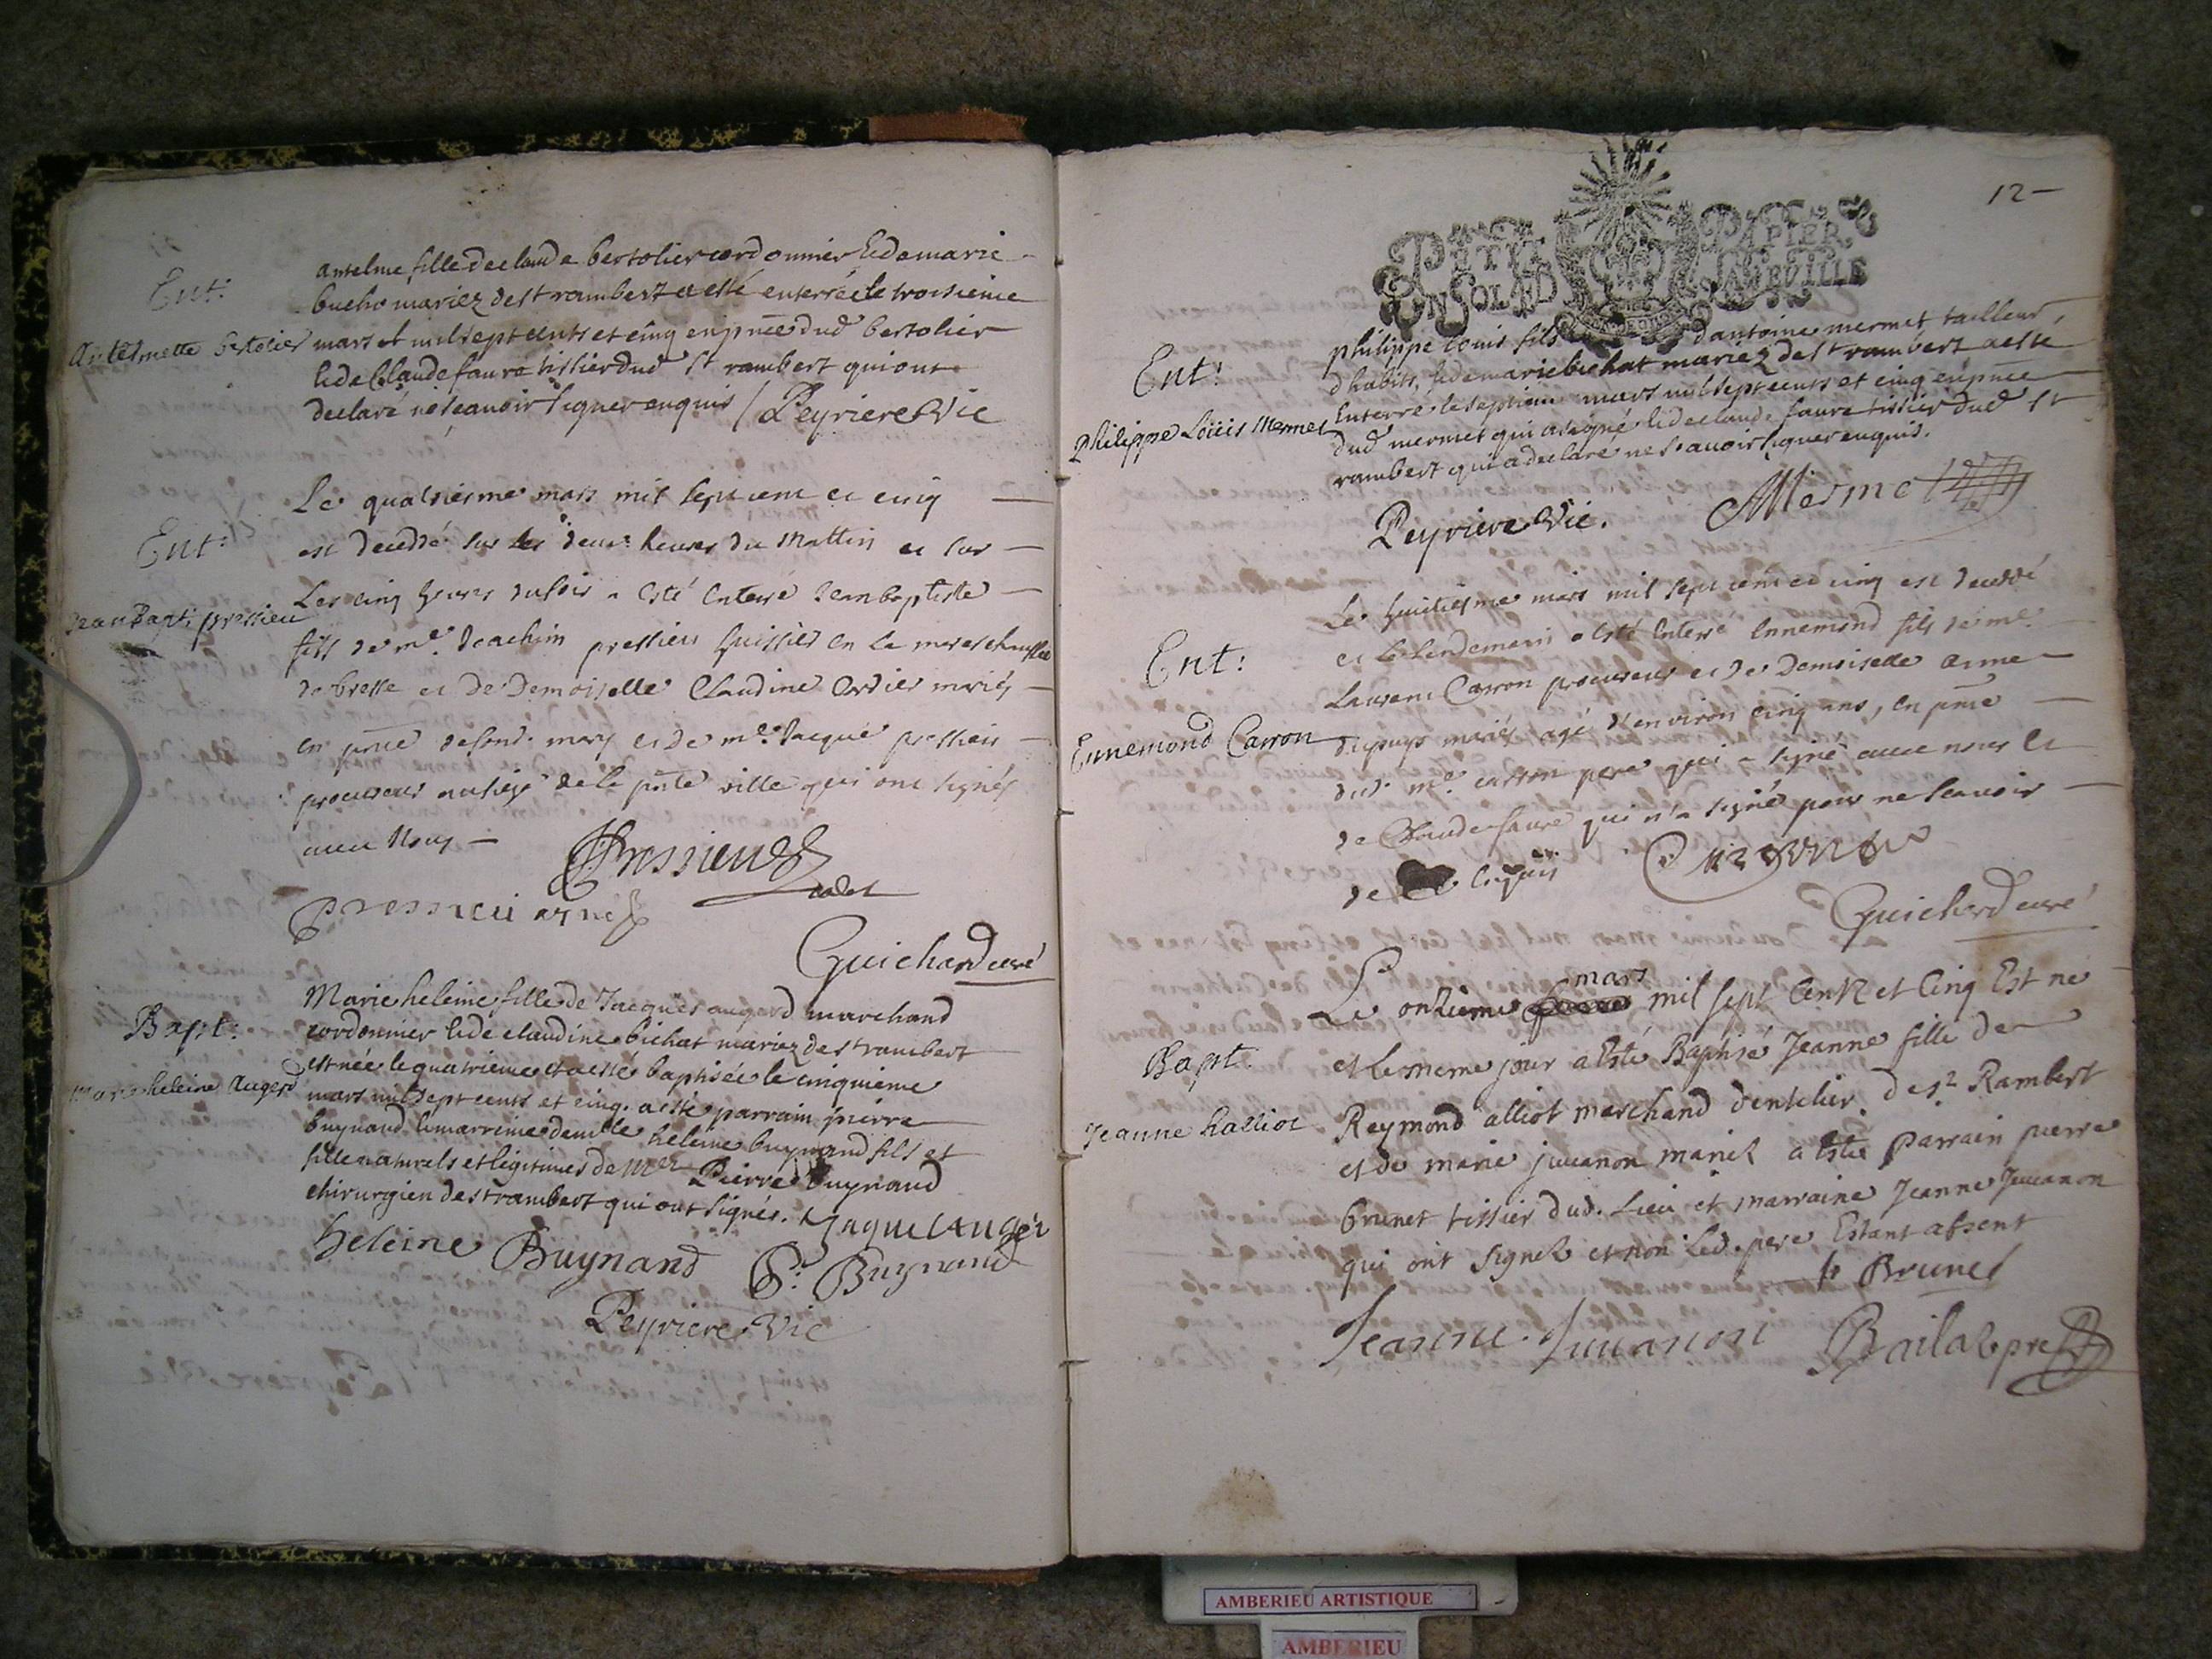 Ent:
Antelmette bertolier
antelme fille de claude bertolier cordonnier & de marie
bucho mariez de st rambert a esté enterrée le troisieme
mars mil sept cents et cinq en pnce dud bertolier
& de Claude faure tissier dud st rambert qui ont
declaré ne scauoir signer enquis / Peyriere Vic
Ent:
Jean Bapti pressieu
Le quatriesme mars mil sept cent et cinq
est decedé sur les deux heures du Mattin et sur
Les cinq heures du soir a esté enterré Jean baptiste
fils de me. Joachim pressieu huissier en la mareschaussée
de bresse et de Demoiselle Claudine Cordier mariés
en pnce desond. mary et de me. Jacque pressieu
procureur au siege de la pnte ville qui ont signés
auec Nous
Pressieu cadet
pressieu ayne
Guichard curé
Bapt:
marie heleine Augerd
Marie heleine fille de Jacques augerd marchand
cordonnier & de claudine bichat mariez de st rambert
est née le quatrieme et a esté baptisée le cinquieme
mars mil sept cents et cinq. a esté parrain pierre
buynand & marreine demlle heleine buynand fils et
fille naturels et legitimes de Mer Pierre buynand
chirurgien de st rambert qui ont signés. Jaque Auger
heleine Buynand P: Buynand
Peyriere Vic
12
PETIT PAPIER
UN SOL 4 D LA FEVILLE
Ent:
Philippe Loüis Mermet
philippe louis fils dantoine mermet tailleur
d habits, & de marie bichat mariez de st rambert a esté
Enterré le septieme mars mil sept cents et cinq en pnce
dud mermet qui a signé & de claude faure tissier dud st
rambert qui a declaré ne scauoir signer enquis.
Peyriere Vic. Mermet
Ent:
Ennemond Carron
Le huitiesme mars mil sept cent et cinq est decedé
et le lendemain a esté enterré Ennemond fils de me.
Laurent Carron procureur et de Demoiselle anne
dupuys mariés agé d'environ cinq ans, en pnce
dud. me. carron pere qui a signé auec nous et
de Claude faure qui n'a signé pour ne scauoir
de ce enquis Carron
Guichard curé
Bapt.
Jeanne halliot
Le onzieme mars mil sept Cents et Cinq Est né
et le meme jour a Esté Baptisé Jeanne fille de
Reymond alliot marchand dentelier de st Rambert
et de marie juuanon mariés a Esté parrain pierre
brunet tissier dud. Lieu et marraine Jeanne Juuanon
qui ont signez et non Led. pere Estant absent
p Brunet
Jeanne Juuanon Bailat pre
AMBERIEU ARTISTIQUE
AMBERIEU